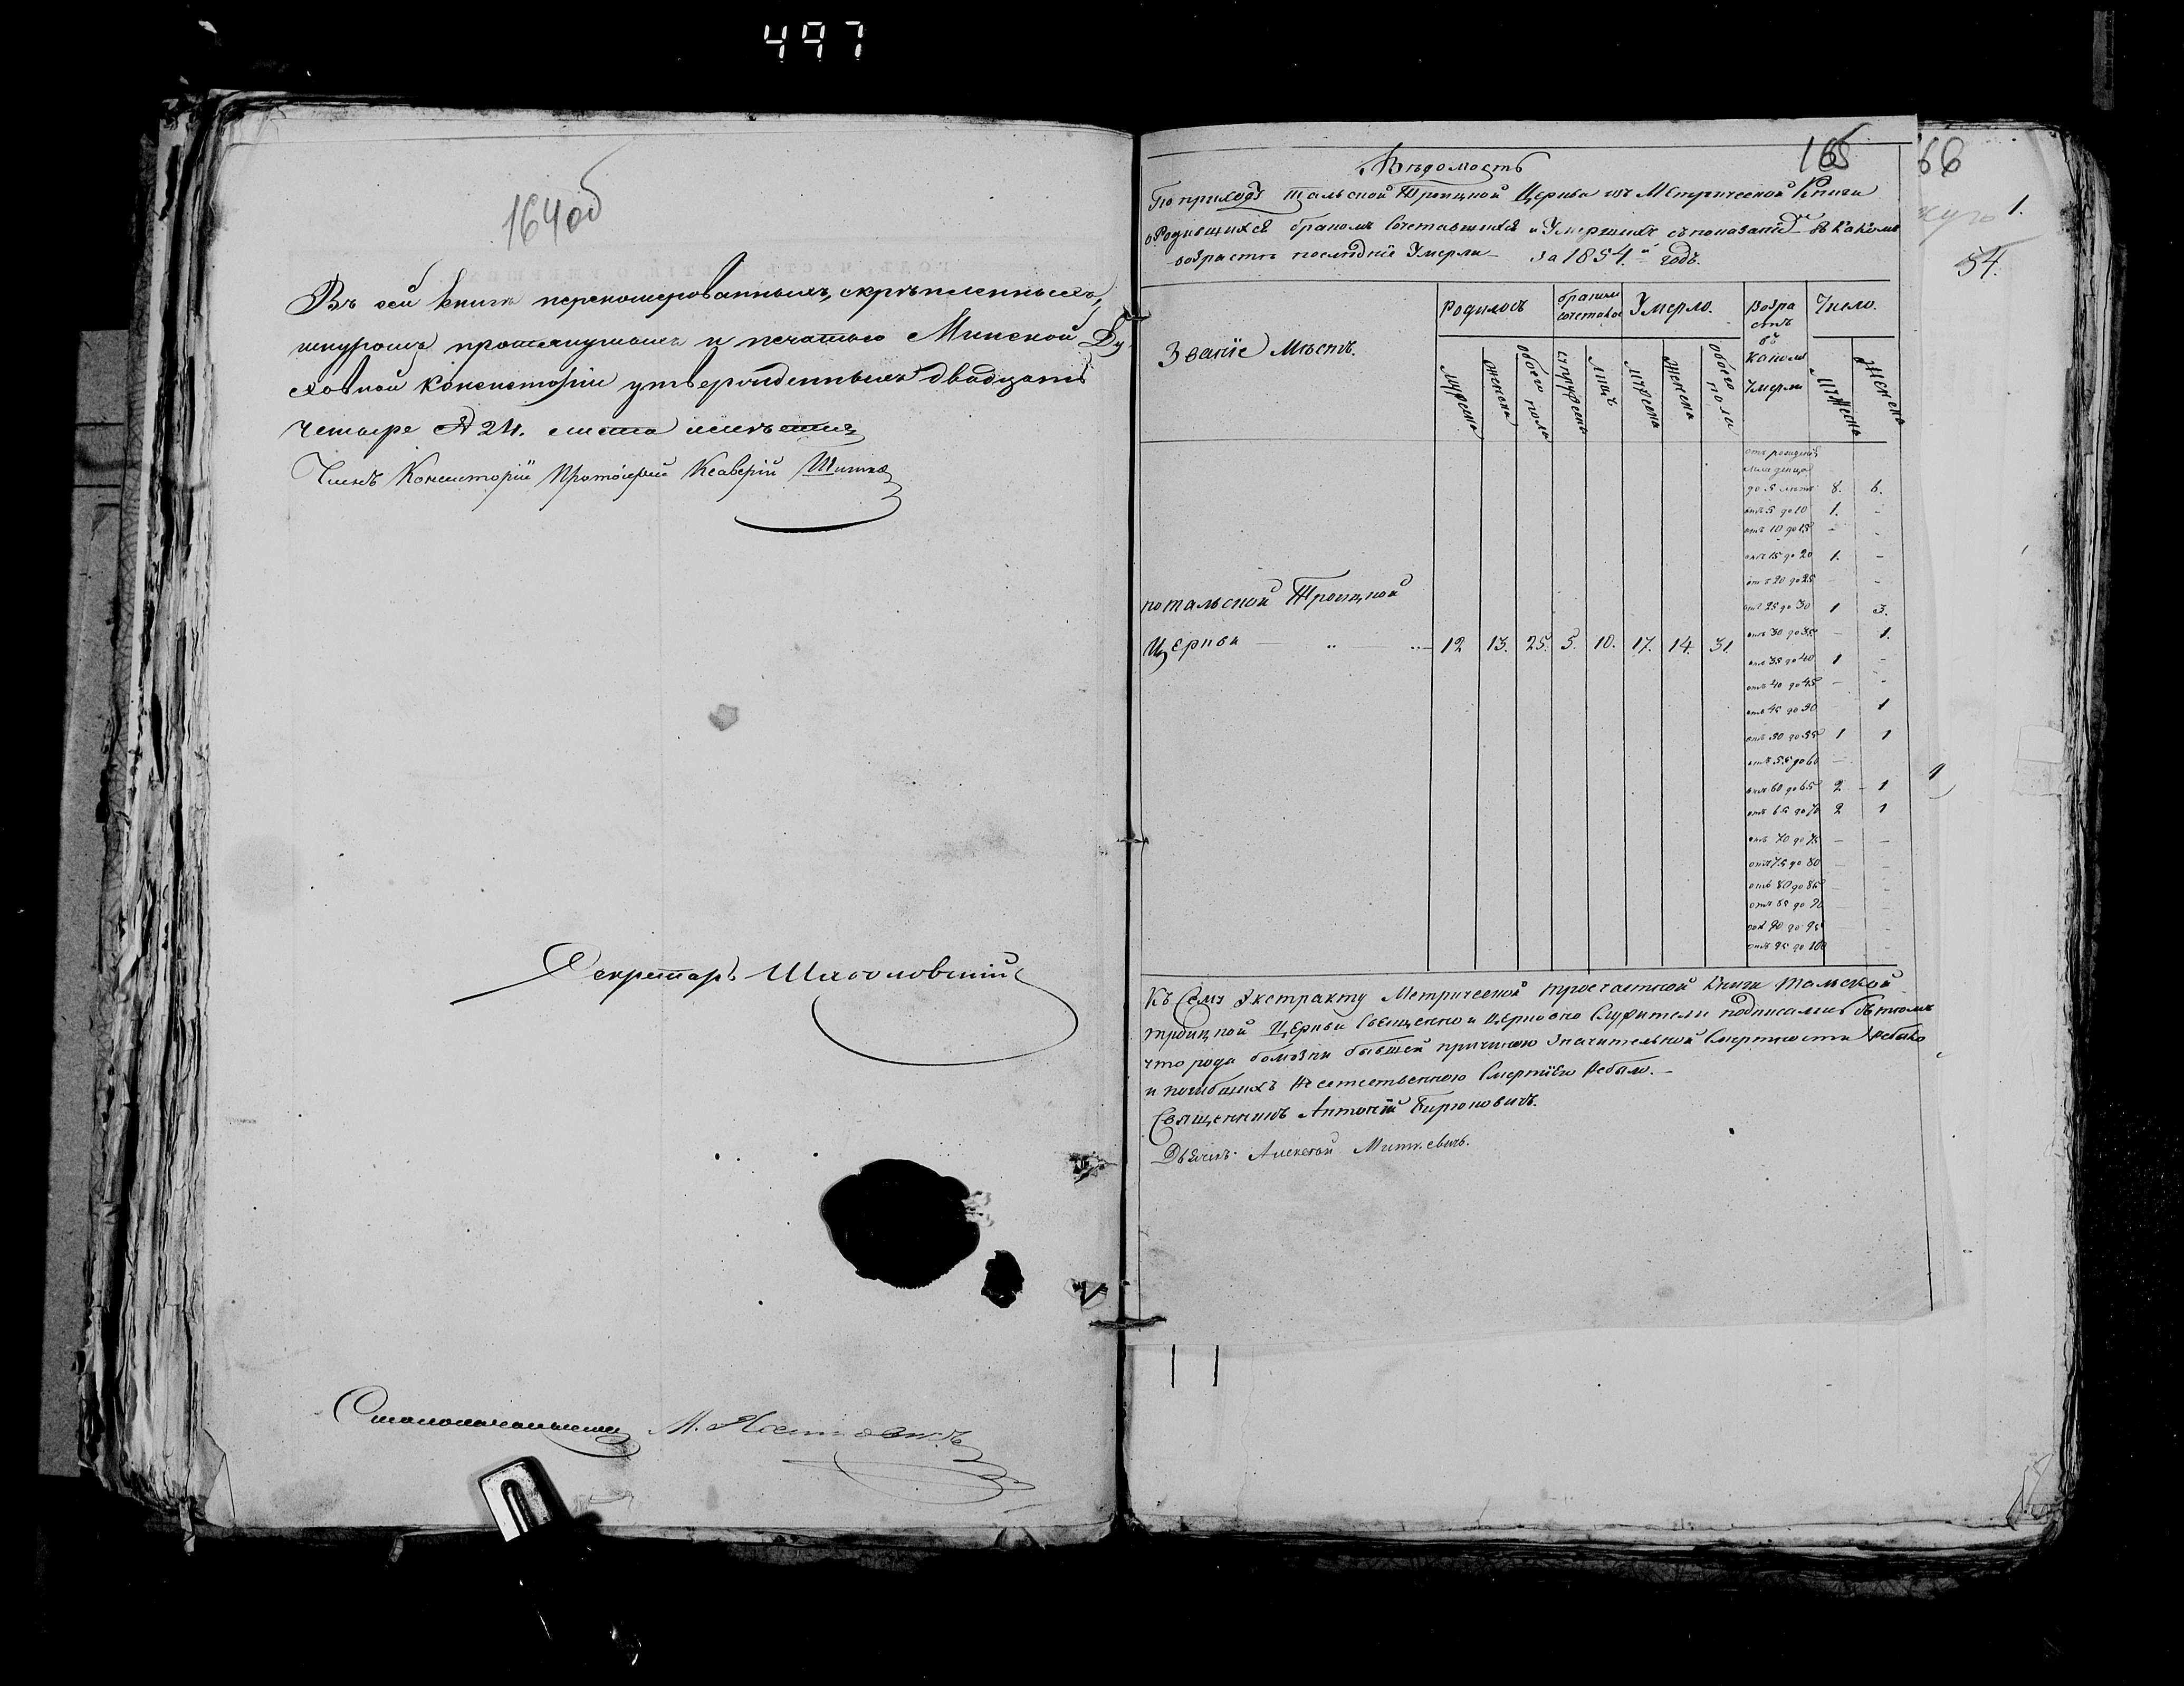 497
164об
Въ сей книгѣ переномерованныхъ, скрѣпленныхъ,
шнуромъ протянутыхъ и печатью Минской Ду
ховной Консисторіи утвержденныхъ двадцать
четыре № 24. листа имѣется
Членъ Консисторіи Протоіерей Ксаверій
Секретарь
Столоначальникъ М.
165
66
1.
54.
Вѣдомость
По приходѣ Тальской Троицкой Церкви изъ Метрической Книги
о Родившихся бракомъ Сочетавшихся и Умершихъ съ показаніемъ въ какомъ
возрастѣ послѣдніе Умерли за 1854.й годъ.
Званіе Мѣстъ.
Родилось
бракомъ сочеталось
Умерло.
Возрастъ въ какомъ Умерли
Число.
мужеска
женска
обоего пола
супружествъ
лицъ
мужеска
женска
обоего пола
Мужеска
Женска
отъ рожденія
младенца
до 5 лѣтъ 8. 6.
отъ 5 до 10 1. -
отъ 10 до 15 - -
отъ 15 до 20 1. -
отъ 20 до 25 - -
отъ 25 до 30 1 3.
потальской Троицкой
Церкви 12 13. 25. 5. 10. 17. 14. 31.
отъ 30 до 35 - 1.
отъ 35 до 40 1 -
отъ 40 до 45 - -
отъ 45 до 50 1
отъ 50 до 55 1 1
отъ 55 до 60 -
отъ 60 до 65 2 1
отъ 65 до 70 2 1
отъ 70 до 75 - -
отъ 75 до 80 - -
отъ 80 до 85 - -
отъ 85 до 90 - -
отъ 90 до 95 -
отъ 95 до 100 -
Къ Сему Экстракту Метрической тросчастной Книги Тальской
троицкой Церкви Священно и Церковно Служители подписались въ томъ
что рода болѣзни бывшей причиною Значительной Смертности небыло
и погибшихъ Неестественною Смертію Небыло.-
Священникъ Антоній Бирюковичъ.
Дьячекъ Алексѣй